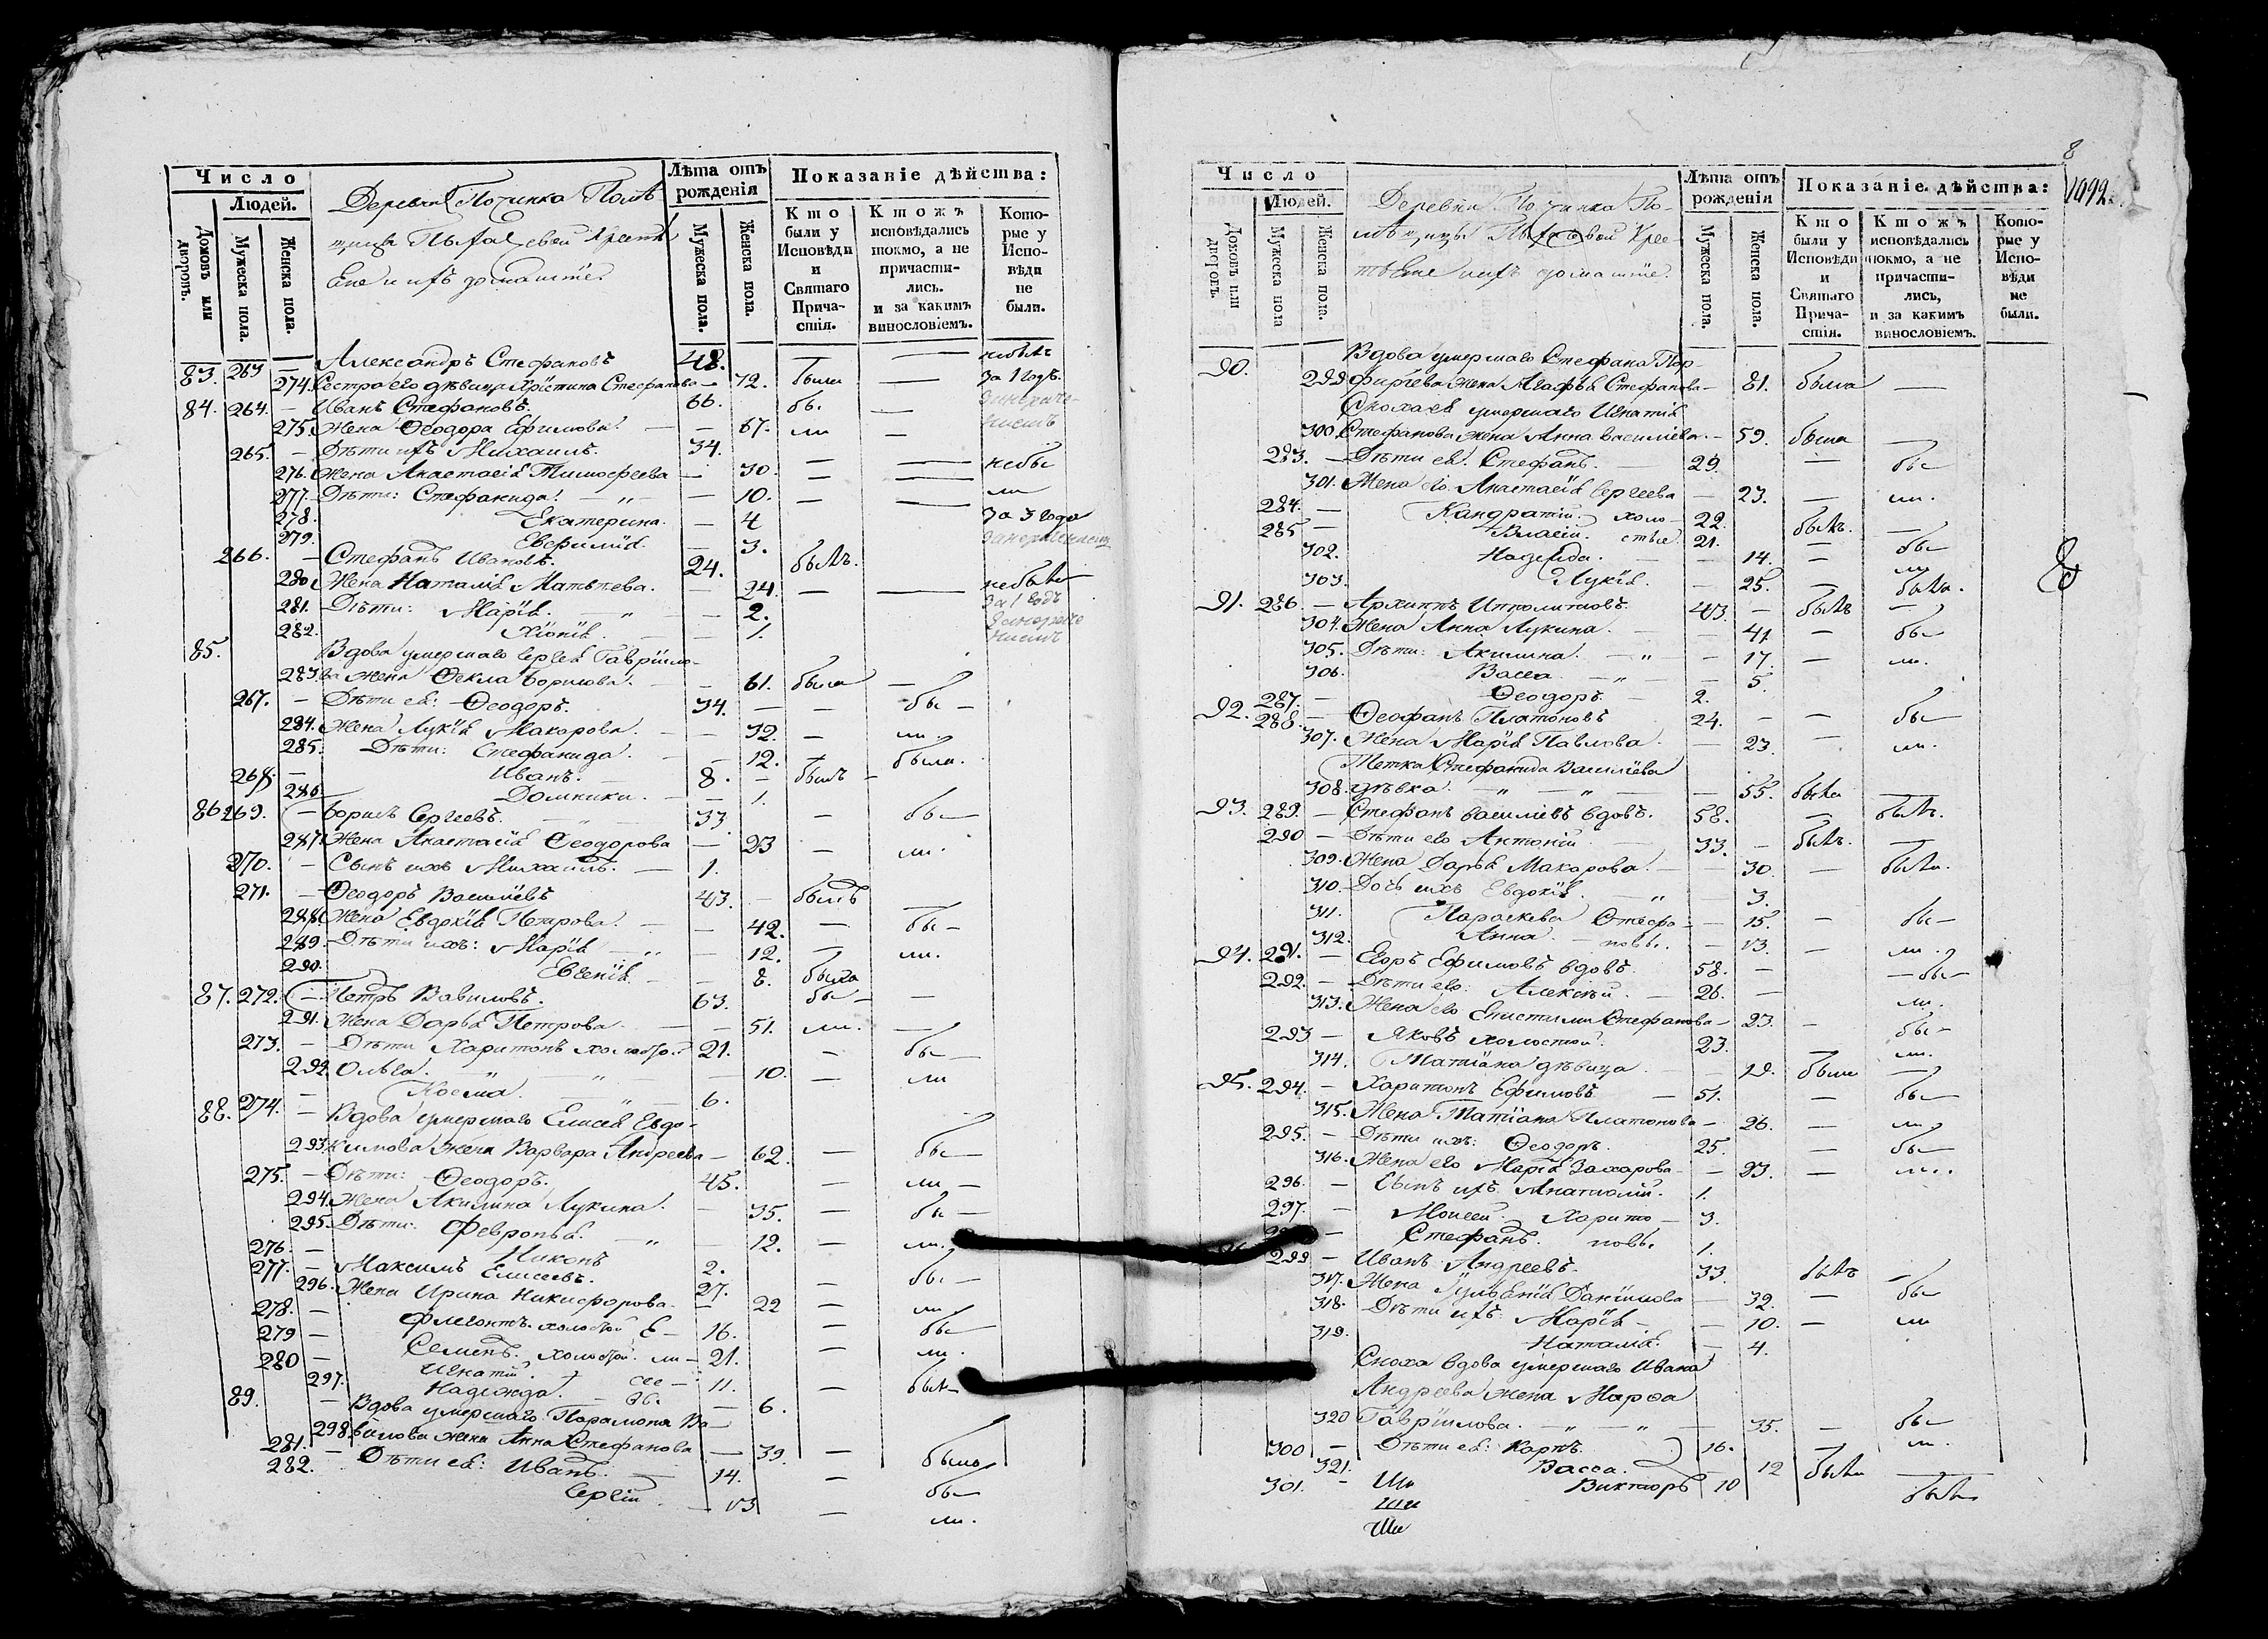 Число
Людей.
Домовъ или дворовъ.
Мужеска пола.
Женска пола.
Деревня Починка Помѣ
щицы крестья
не и ихъ домашніе
Лѣта отъ рожденія
Мужеска пола.
Женска пола.
Показаніе дѣйства:
Кто были у Исповѣди и Святаго Причастія.
Ктожъ исповѣдались токмо, а не причастились. и за какимъ винословіемъ.
Которые у Исповѣди не были.
83. 263 — Александръ Стефановъ 48. — — небылъ
274. Сестра его дѣвица Христина Стефанова — 72. была — за 1 годъ.
84. 264. — Иванъ Стефановъ. 66. бы —
275. Жена Ѳеодора Ефимова. — 67. ли —
265. — Дѣти ихъ Михаилъ. 34. — — небы
276. Жена Анастасія Тимофеева — 30. — — ли
277. Дѣти: Стефанида. — 10. — — за 3 года
278. Екатерина. — 4
279. Евфимія. — 3.
266. — Стефанъ Ивановъ. 24. былъ.
280 Жена Наталія Матвѣева. — 24. — — небыла
281. Дѣти: Марія. — 2. за 1 годъ
282. Хіонія. — 1.
85. Вдова умершаго Сергѣя Гавріило-
283 ва жена Ѳекла Борисова. — 61. была —
267. — Дѣти ея: Ѳеодоръ. 34. — — бы —
284. Жена Лукія Макарова. — 32. — ли.
285. Дѣти: Стефанида. — 12. — были.
268. — Иванъ. 8. — былъ —
286 Домника. — 1.
86 269. — Борисъ Сергеевъ. 33 — бы —
287. Жена Анастасія Ѳеодорова — 23 — ли.
270. — Сынъ ихъ Михаилъ. — 1.
271. — Ѳеодоръ Васильевъ 43. — былъ —
288. Жена Евдокія Петрова. — 42. — бы —
289. Дѣти ихъ: Марія — 12. — ли.
290. Евгенія. — 8. была
87. 272. — Петръ Вавиловъ. 63. бы — —
291. Жена Дарья Петрова. — 51. ли. —
273. — Дѣти Харитонъ холостой 21. — бы —
292. Ольга. — 10. — ли
274. — Косма. — 6.
88. — Вдова умершаго Елисея Евдо-
293 кимова жена Варвара Андреева — 62. — бы —
275. — Дѣти: Ѳеодоръ. 45. — ли —
294. Жена Акилина Лукина. — 35. — бы —
295. Дѣти: Февронья. — 12. — ли.
276. — Никонъ 2.
277. — Максимъ Елисеевъ. 27. — бы —
296. Жена Ирина Никифорова. — 22 — ли
278. — Флегонтъ. холостой Е — 16. — бы —
279 — Семенъ. холостой. ли — 21. — ли.
280 — Игнатій. сее — 11. — были —
297. Надежда. вы. — 6.
89. — Вдова умершаго Парамона Ва —
298. вилова жена Анна Стефанова — 39. — была
281. — Дѣти ея: Иванъ. — 14. — бы —
282. Сергій. — 13 — ли.
8
1092.
Число
Людей.
Домовъ или дворовъ.
Мужеска пола
Женска пола.
Деревня Починка По-
мѣщицы Крес-
тьяне ихъ домашніе.
Лѣта отъ рожденія
Мужеска пола.
Женска пола.
Показаніе дѣйства:
Кто были у Исповѣди и Святаго Причастія.
Ктожъ исповѣдались токмо, а не причастились, и за какимъ винословіемъ.
Которые у Исповѣди не были.
90. Вдова умершаго Стефана Пор-
299 фирьева жена Агафья Стефанова — 81. была —
Сноха ея умершаго Игнатія
300. Стефанова жена Анна Васильева. — 59. была —
283. — Дѣти ея. Стефанъ. — 29. — бы
301. Жена его Анастасія Сергеева — 23. — ли.
284. — Кандратій. холо- 22. былъ. —
285 — Власій. стые. 21. — бы
302. Надежда. — 14. — ли
303. Лукія. — 25. — была.
91. 286. — Архиппъ Ипполитовъ. 43. — былъ —
304. Жена Анна Лукина. — 41 — бы
305. Дѣти: Акилина. — 17. — ли.
306. Васса. — 5.
287. — Ѳеодоръ. 2.
92. 288. — Ѳеофанъ Платоновъ 24. — — бы
307. Жена Марія Павлова. — 23. — ли.
Тетка Стефанида Васильева
308. дѣвка. — 55. была —
93. 289. — Стефанъ Васильевъ вдовъ. 58. — былъ.
290 — Дѣти его Антоній. 33. — былъ. —
309. Жена Дарья Макарова. — 30. — была.
310. Дочь ихъ Евдокія. — 3.
311. Параскева Стефа- — 15. — бы —
312. Анна. — новы. — 13. — ли.
94. 291. — Егоръ Ефимовъ вдовъ. 58. — — бы —
292. — Дѣти его: Алексѣй. — 26. — ли.
313. Жена его Епистимія Стефанова — 23. — бы —
293 — Яковъ холостой. 23. — ли.
314. Татіана дѣвица. — 19. была —
95. 294. — Харитонъ Ефимовъ. 51. — бы —
315. Жена Татіана Платонова — 26. — ли
295. — Дѣти ихъ: Ѳеодоръ. 25. — бы —
316. Жена его Марія Захарова — 23. — ли.
296. — Сынъ ихъ. Анатолій. 1.
297. — Моисей. Харито — 3.
— Стефанъ. новы. 1.
299 — Иванъ Андреевъ. 33. былъ —
317. Жена Гуліанія Даніилова — 32. — бы
318. Дѣти ихъ: Марія — 10. — ли
319. Наталія. — 4.
Сноха вдова умершаго Ивана
Андреева жена Марѳа
320 Гавріилова. — 35. — бы —
300 — Дѣти ея: Карпъ. 16. — ли.
321. Васса. 12 была —
301. — Викторъ 10 былъ